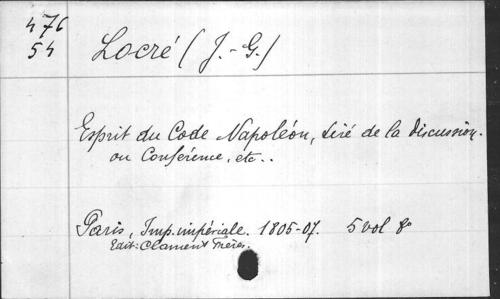 476
54
Locré (J.-G.)
Esprit du Code Napoléon, tiré de la Discussion.
ou Conférence, etc..
Paris, Imp. impériale. 1805-07. 5 vol 8º
Edit: Clament Frères.